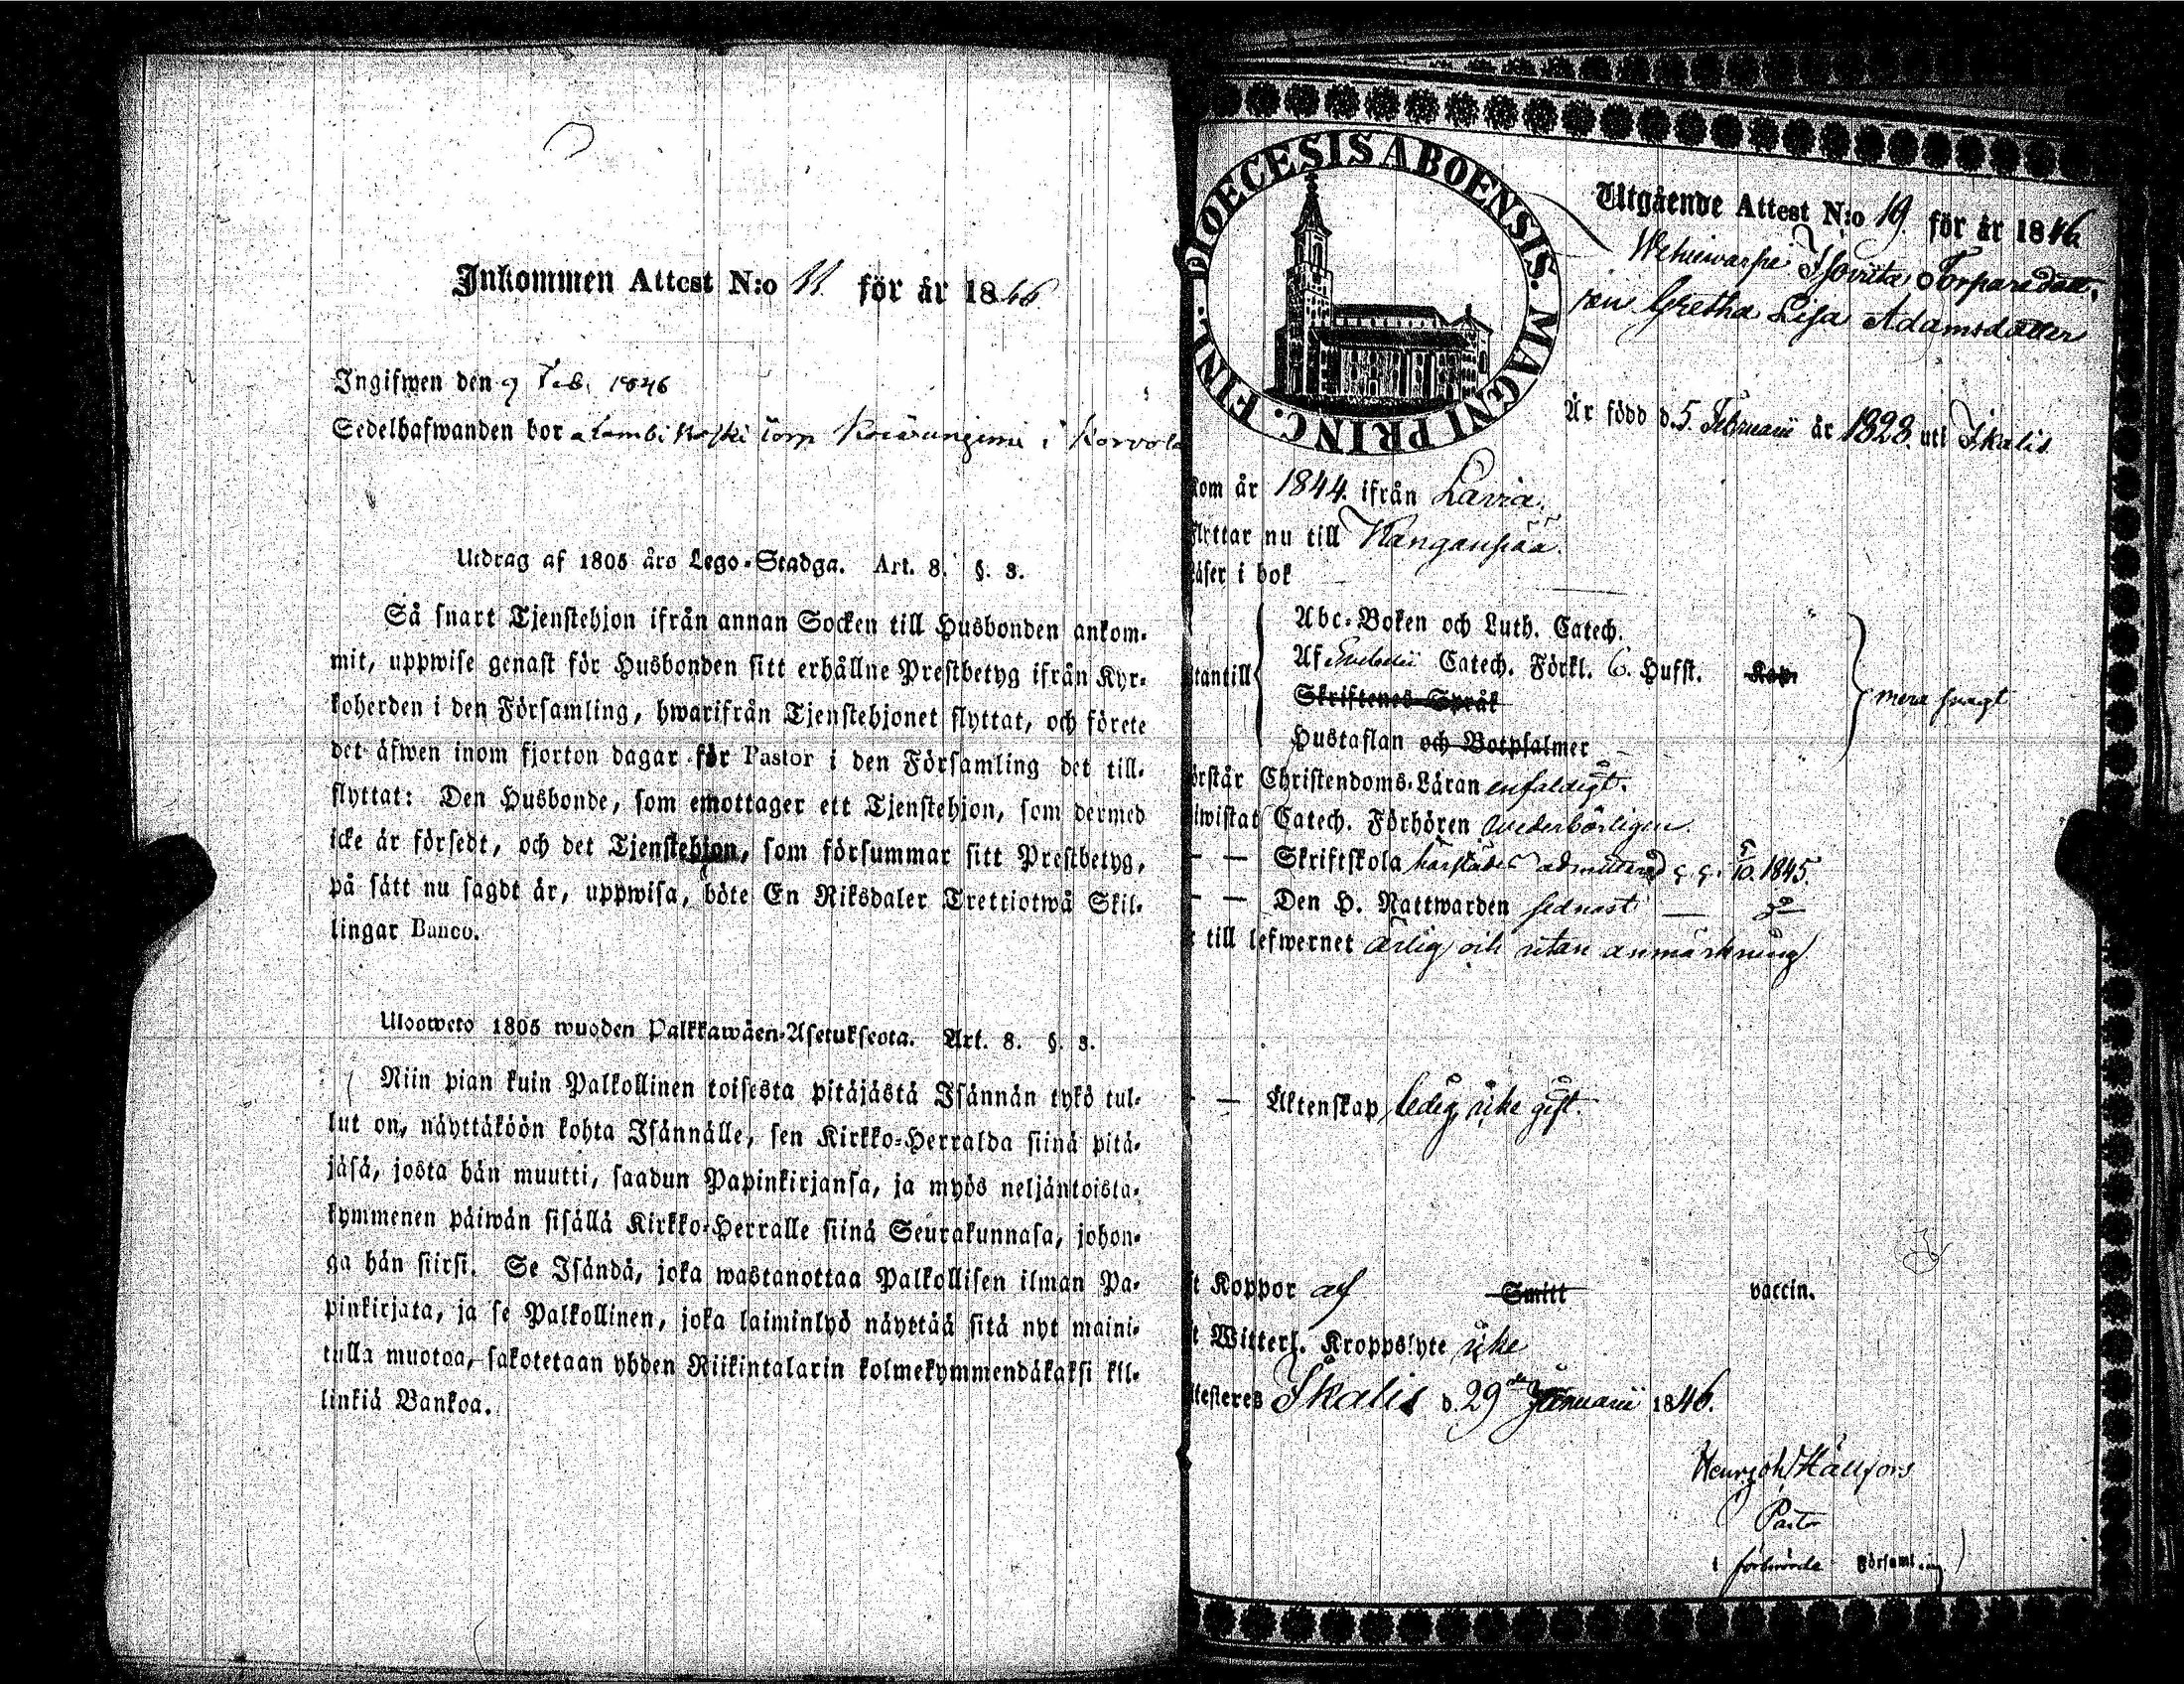 Inkommen Attest N:o 11. för år 1846
Ingifwen den 9 Feb. 1846
Sedelhafwanden bor torp i
Utdrag af 1805 års Lego-Stadga. Art. 8. §. 3.
Så snart Tjenstehjon ifrån annan Socken till Husbonden ankom-
mit, uppwise genast för Husbonden sitt erhållne Prestbetyg ifrån Kyr-
koherden i den Församling, hwarifrån Tjenstehjonet flyttat, och förete
det äfwen inom fjorton dagar för Pastor i den Församling det till-
flyttat: Den Husbonde, som emottager ett Tjenstehjon, som dermed
icke är försedt, och det Tjenstehjon, som försummar sitt Prestbetyg,
på sätt nu sagdt är, uppwisa, böte En Riksdaler Trettiotwå Skil-
lingar Banco.
Ulosweto 1805 wuoden Palkkawäen-Asetuksesta. Art. 8. §. 3.
Niin pian kuin Palkollinen toisesta pitäjästä Isännän tykö tul-
lut on, näyttäköön kohta Isännälle, sen Kirkko-Herralda siinä pitä-
jäsä, josta hän muutti, saadun Papinkirjansa, ja myös neljäntoista-
kymmenen päiwän sisällä Kirkko-Herralle siinä Seurakunnasa, johon-
ga hän siirsi. Se Isändä, joka wastanottaa Palkollisen ilman Pa-
pinkirjata, ja se Palkollinen, joka laiminlyö näyttää sitä nyt maini-
tulla muotoa, sakotetaan yhden Riikintalarin kolmekymmendäkaksi kil-
linkiä Bankoa.
DIOECESIS ABOENSIS. MAGNI PRINC. FINL.
Utgående Attest N:o 19. för år 1846
Torparedott.
Gretha Lisa Adamsdotter
Är född d. 5 Februarii år 1828. uti Ikalis
kom år 1844. ifrån Lavia.
flyttar nu till Kanganpää.
läser i bok
Abc-Boken och Luth. Catech.
Af Svebelii Catech. Förkl. 6. Hufst. Kap.
utantill
Skriftenes Språk
mera svagt
Hustaflan och Botpsalmer
örstår Christendoms-Läran enfaldigt.
iwistat Catech. Förhören wederbörligen.
— — Skriftskola härstädes admitterad 5/10. 1845.
— — Den H. Nattwarden sednast —
till lefwernet ärlig och utan anmärkning
— — Äktenskap ledig, icke gift.
t Koppor af Smitt vaccin.
t Witterl. Kroppslyte icke
ttesteres Ikalis d. 29de Januarii 1846.
Hällfors
Pastor
i förberörde Församling